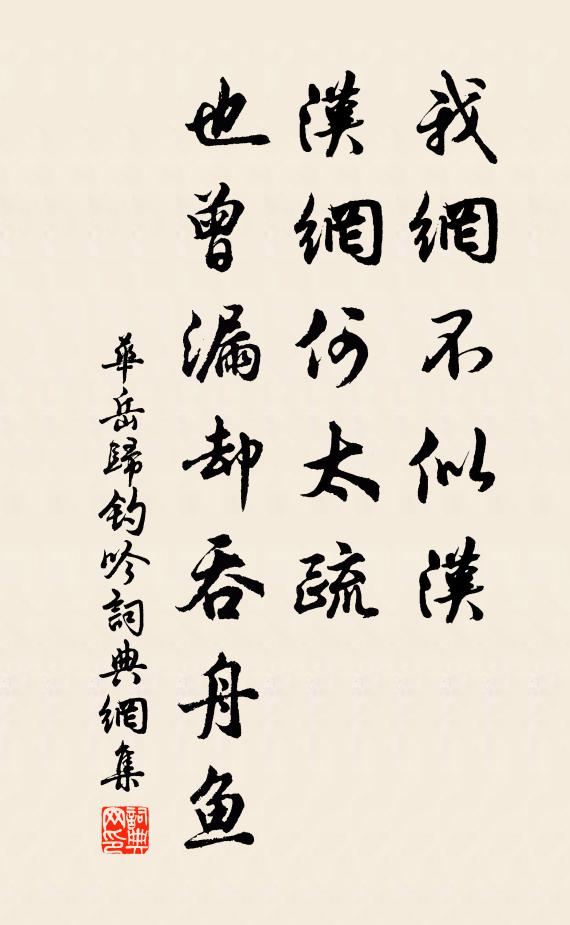 我網不似漢
漢網何太疏
也曾漏却吞舟魚
華岳歸釣吟詞典網集
詞典网印